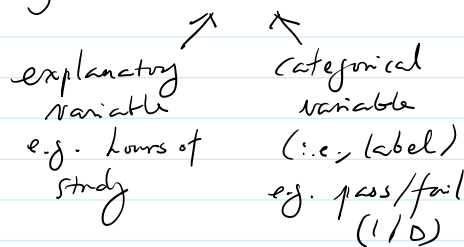 explanatory
variable
e.g. hours of
study
categorical
variable
(i.e., label)
e.g. pass/fail
(1/0)